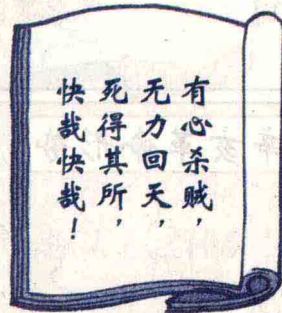 有心杀贼，
无力回天，
死得其所，
快哉快哉！